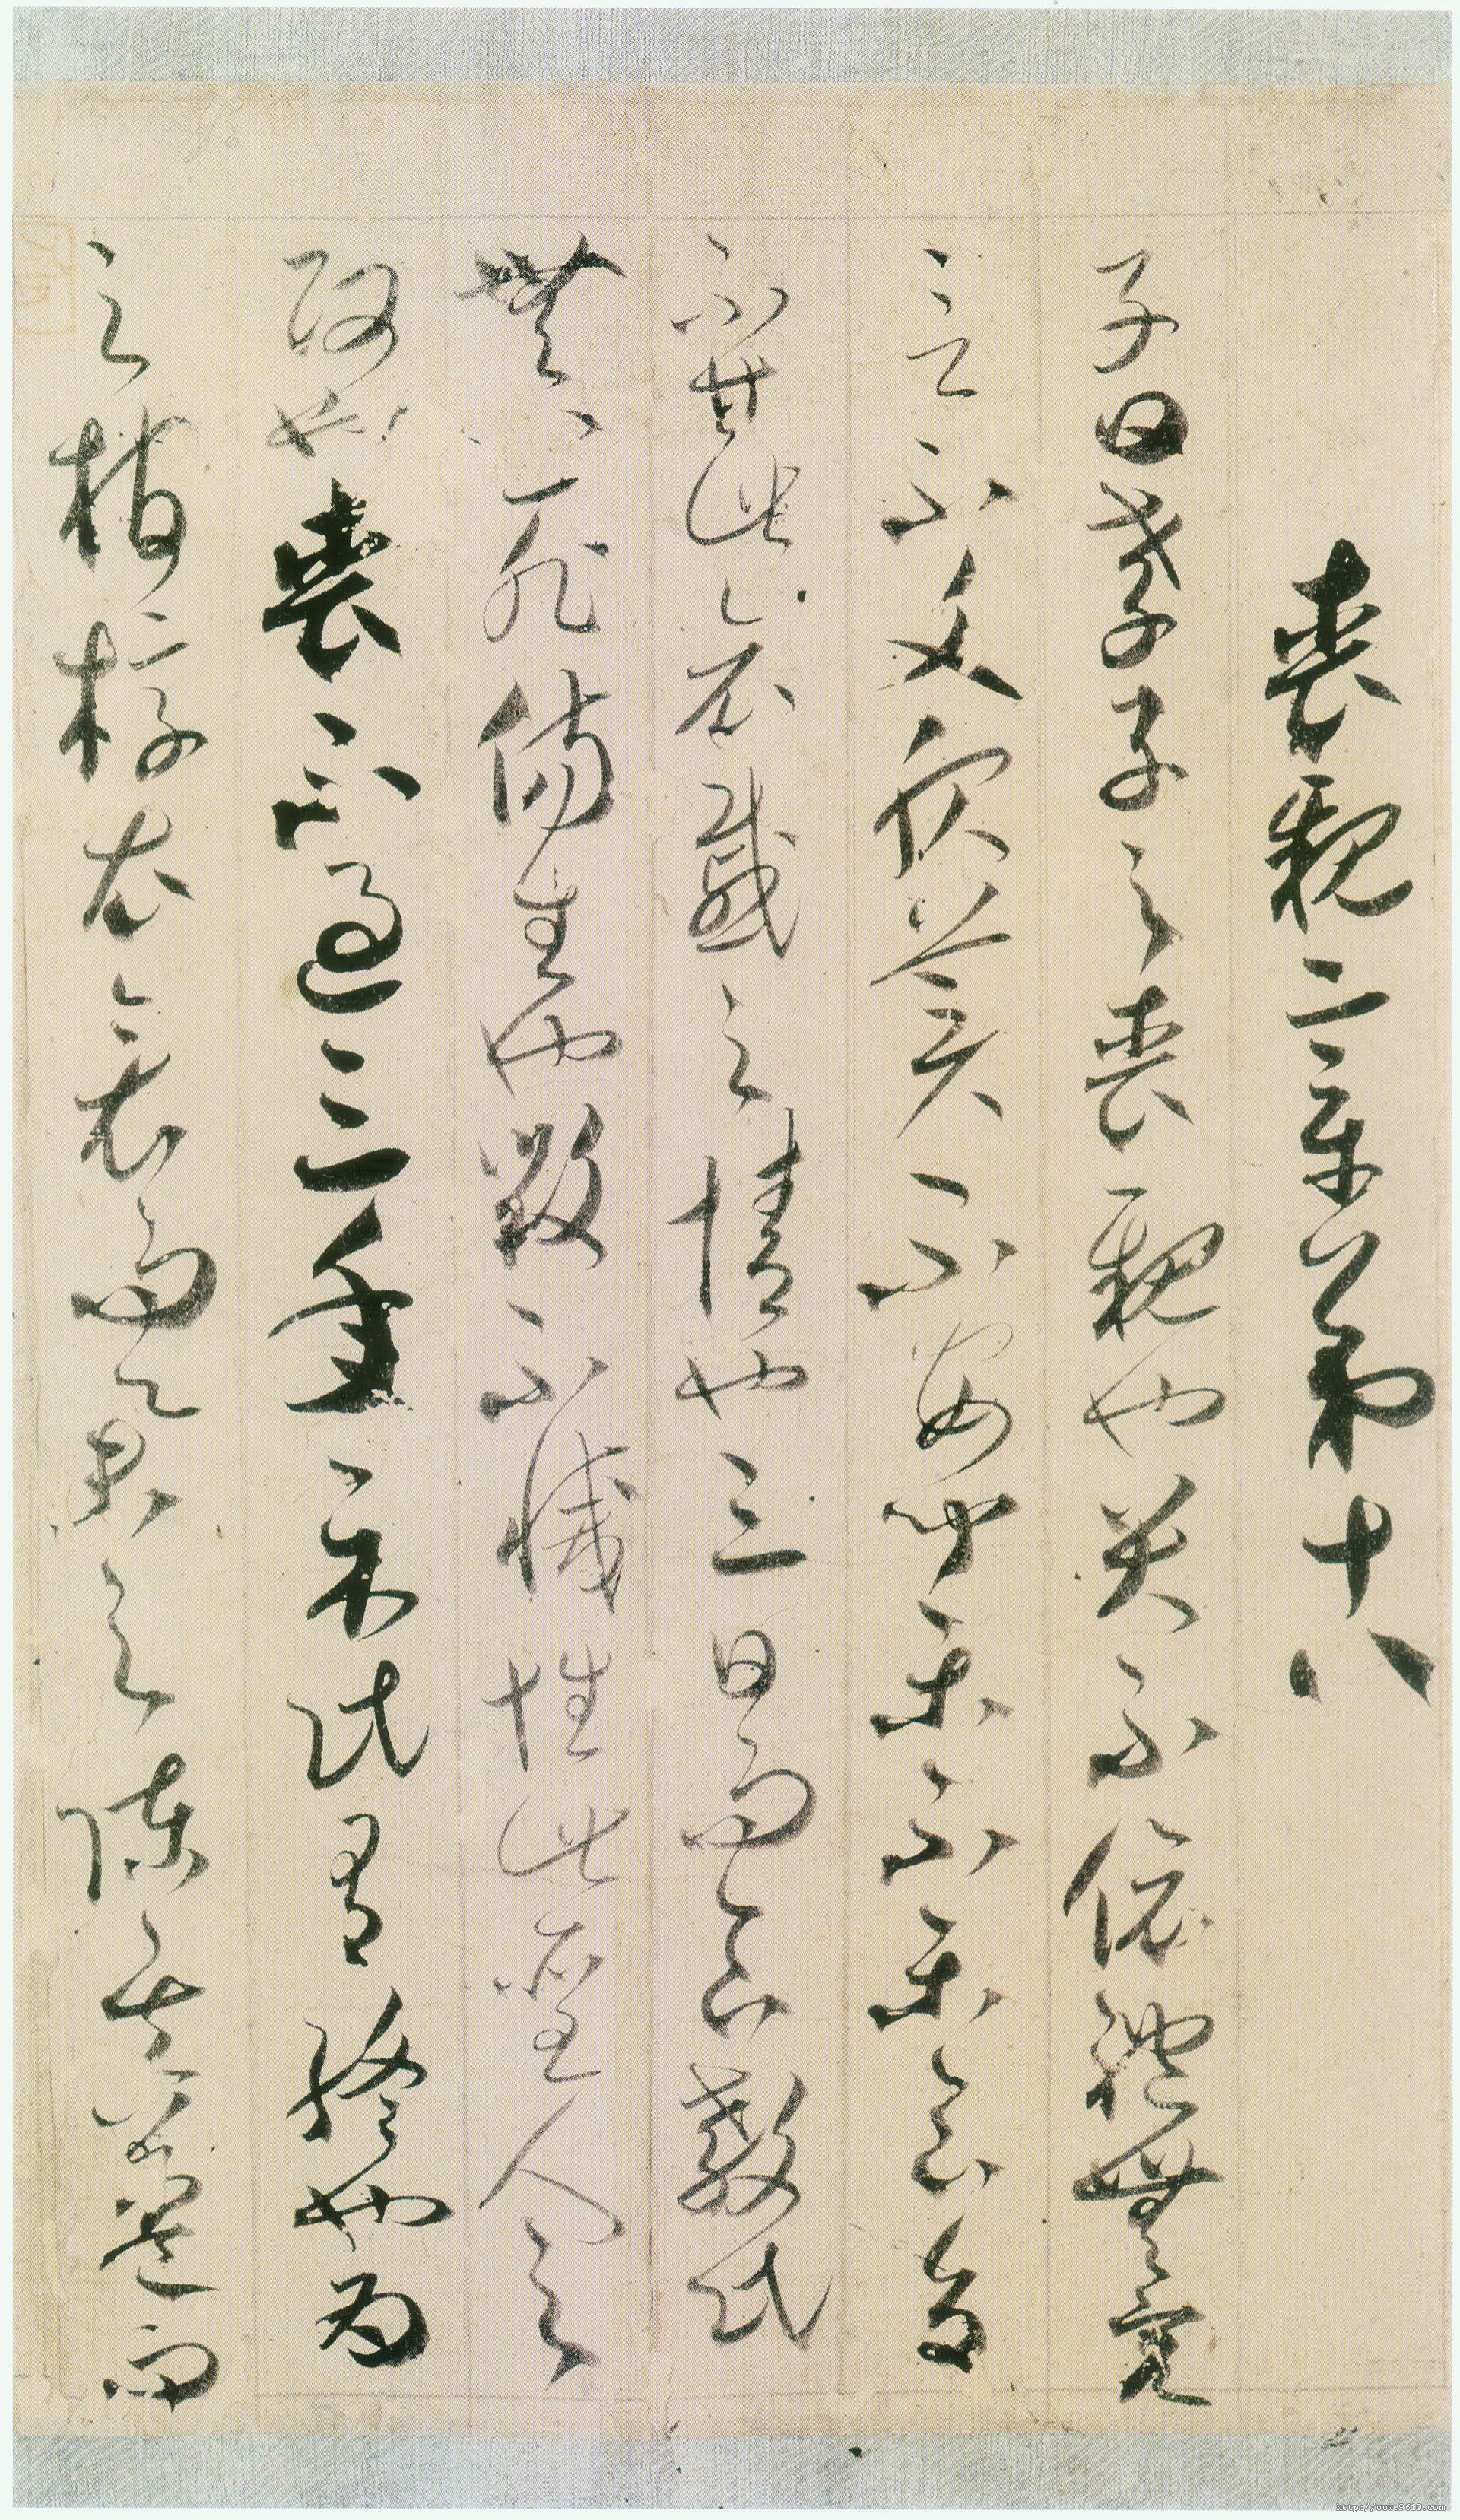 喪親章第十八
子曰孝子之喪親也哭不偯禮無容
言不文服美不安聞樂不樂食旨
不甘此哀慼之情也三日而食教民
無以死傷生也毀不滅性此聖人之
政也喪不過三年示民有終也為
之棺椁衣衾而舉之陳其簠簋而
http://www.9610.com